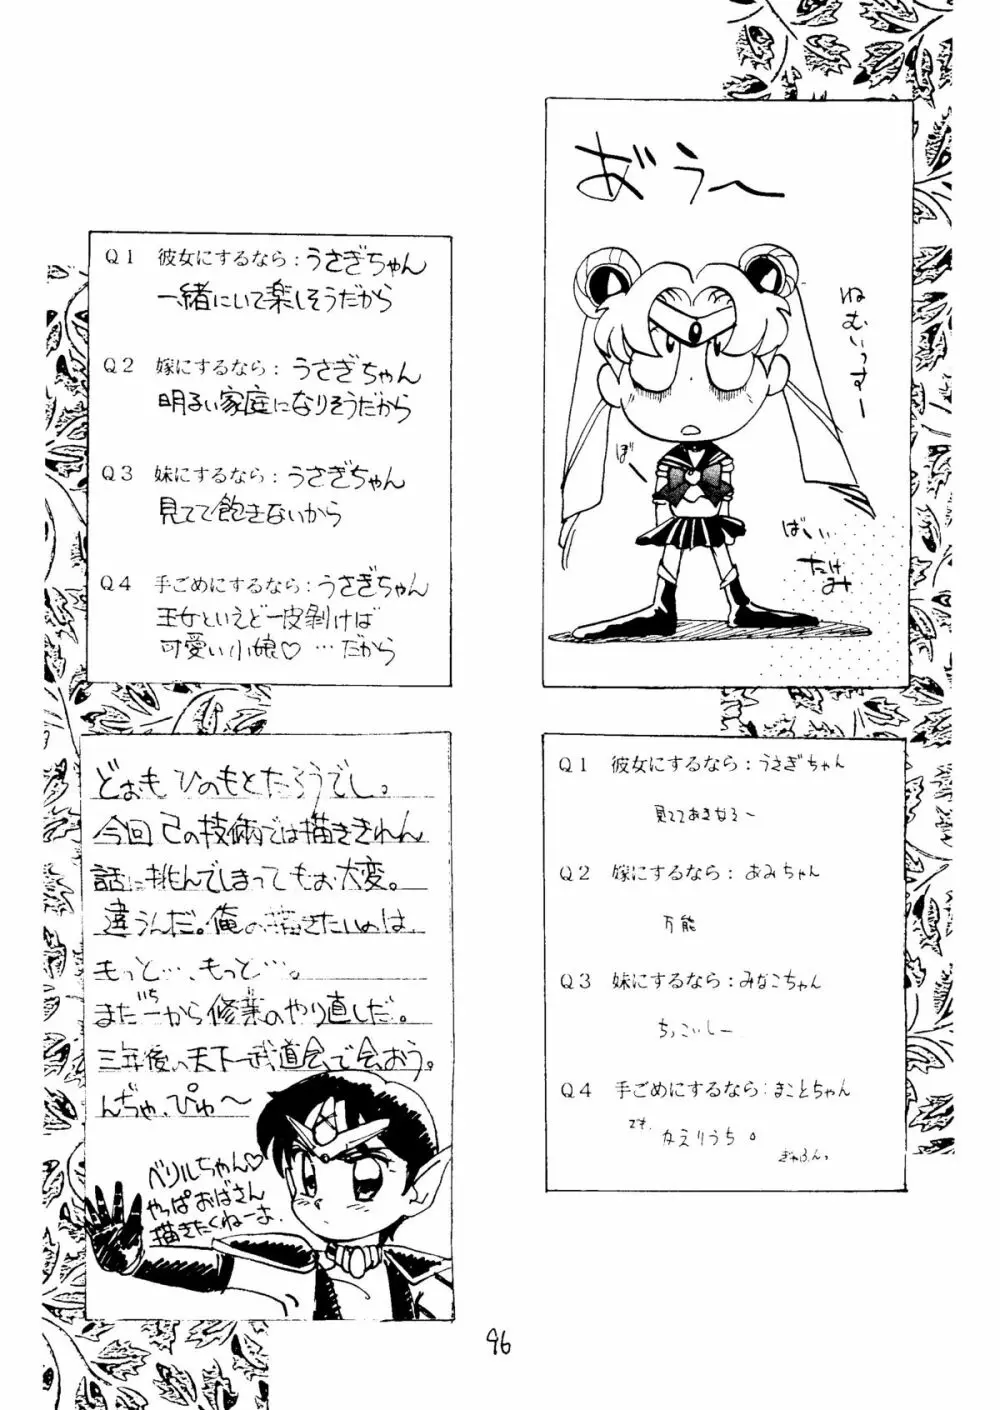 おうー
ねむいっすー
ぼー
ばい
たけみ
Q1 彼女にするなら：うさぎちゃん
一緒にいて楽しそうだから
Q2 嫁にするなら：うさぎちゃん
明るい家庭になりそうだから
Q3 妹にするなら：うさぎちゃん
見てて飽きないから
Q4 手ごめにするなら：うさぎちゃん
王女といえど一皮剥けば
可愛い小娘♡…だから
Q1 彼女にするなら：うさぎちゃん
見ててあきなそ〜
Q2 嫁にするなら：あみちゃん
万能
Q3 妹にするなら：みなこちゃん
ちっこいしー
Q4 手ごめにするなら：まことちゃん
です、
かえりうち。
ぎゃふんっ
どおも ひのもとたろうでし。
今回己の技術では描ききれん
話に挑んでしまってもお大変。
違うんだ。俺の描きたいのは、
もっと…、もっと…。
また一から修業のやり直しだ。
三年後の天下一武道会で会おう。
んぢゃ、ぴゅ〜
ベリルちゃん♡
やっぱおばさん
描きたくねーよ.
96